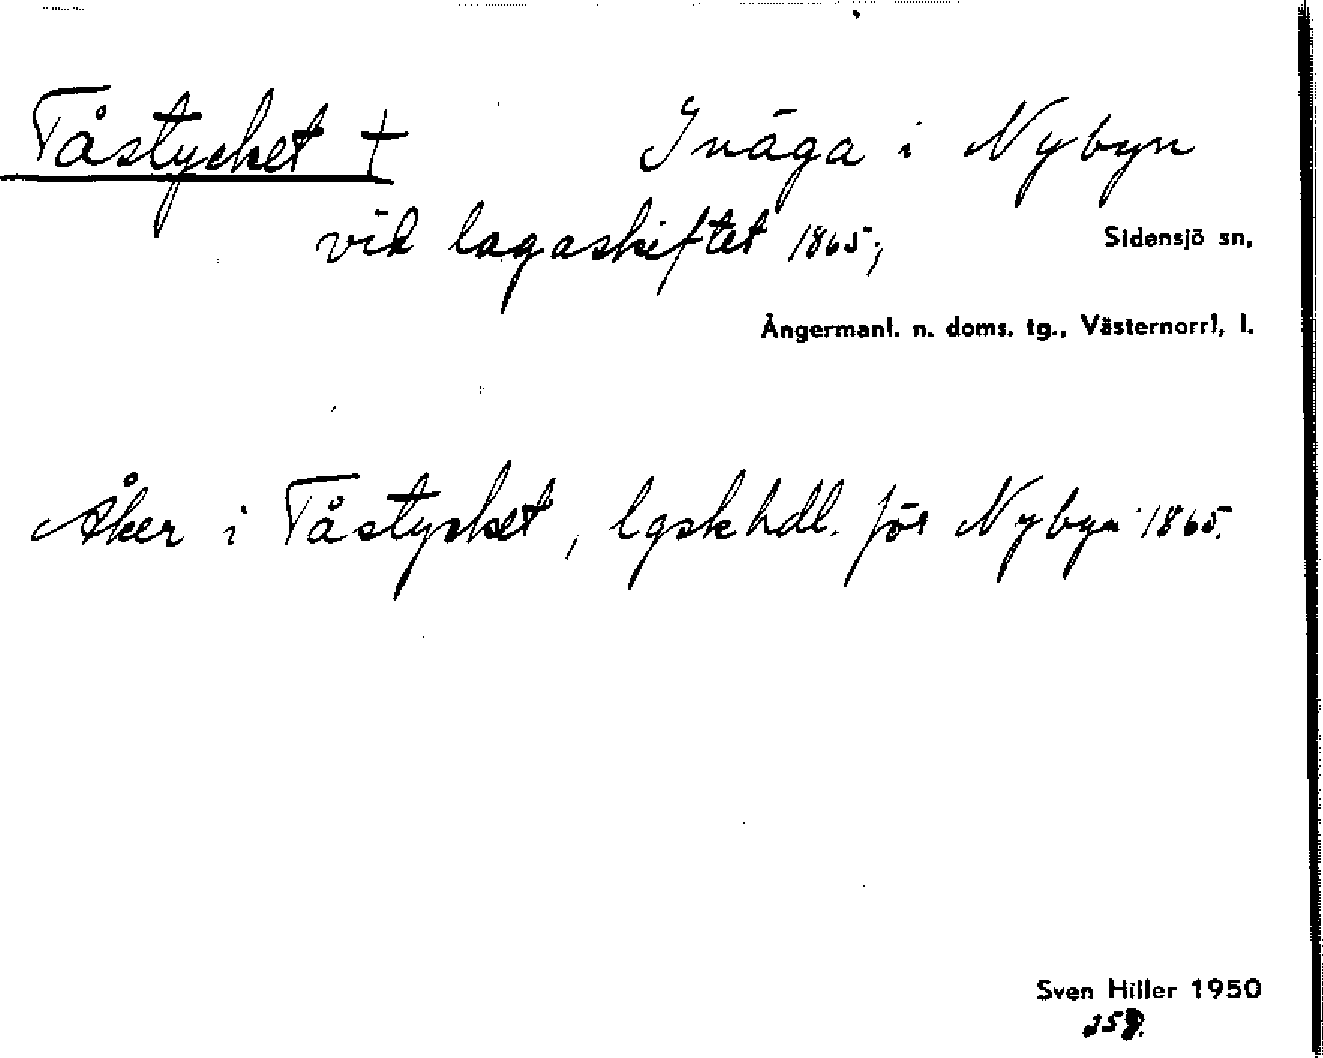 Tåstycket † Inäga i Nybyn
vid lagaskiftet 1865;
Sidensjö sn,
Ångermanl. n. doms. tg., Västernorrl. l.
Åker i Tåstycket, lgskhdl. för Nybyn 1865.
Sven Hiller 1950